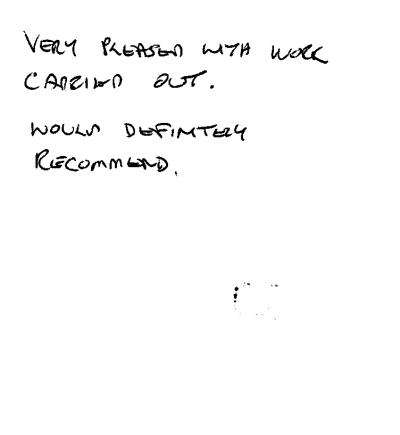 VERY PLEASED WITH WORK
CARRIED OUT.
WOULD DEFINTELY
RECOMMEND.